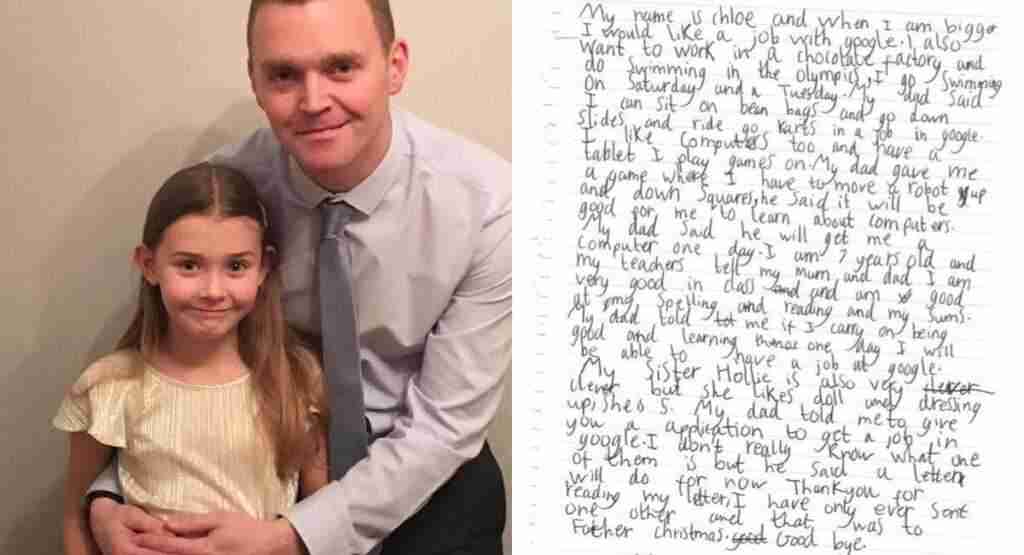 My name is chloe and when I am bigger
I would like a job with google. I also
want to work in a chocolate factory and
do swimming in the olympics, I go swimming
on Saturday and a Tuesday. My dad said
I can sit on bean bags and go down
slides and ride go karts in a job in google.
I like computers too and have a
tablet I play games on. My dad gave me
a game where I have to move a robot up
and down squares, he said it will be
good for me to learn about computers.
My dad said he will get me a
computer one day. I am 7 years old and
my teachers tell my mum and dad I am
very good in class and am good
at my spelling and reading and my sums.
My dad told me if I carry on being
good and learning one day I will
be able to have a job at google.
My sister Hollie is also very
clever but she likes doll and dressing
up, shes 5. My dad told me to give
you a application to get a job in
google. I don't really know what one
of them is but he said a letter
will do for now Thankyou for
reading my letter, I have only ever sent
one other and that was to
Father christmas. Good bye.